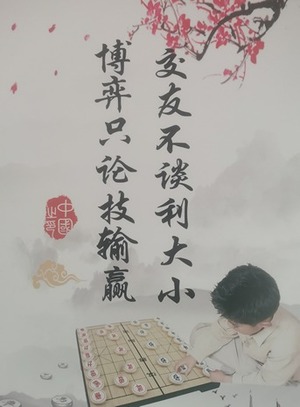 交友不谈利大小
博弈只论技输赢
中國